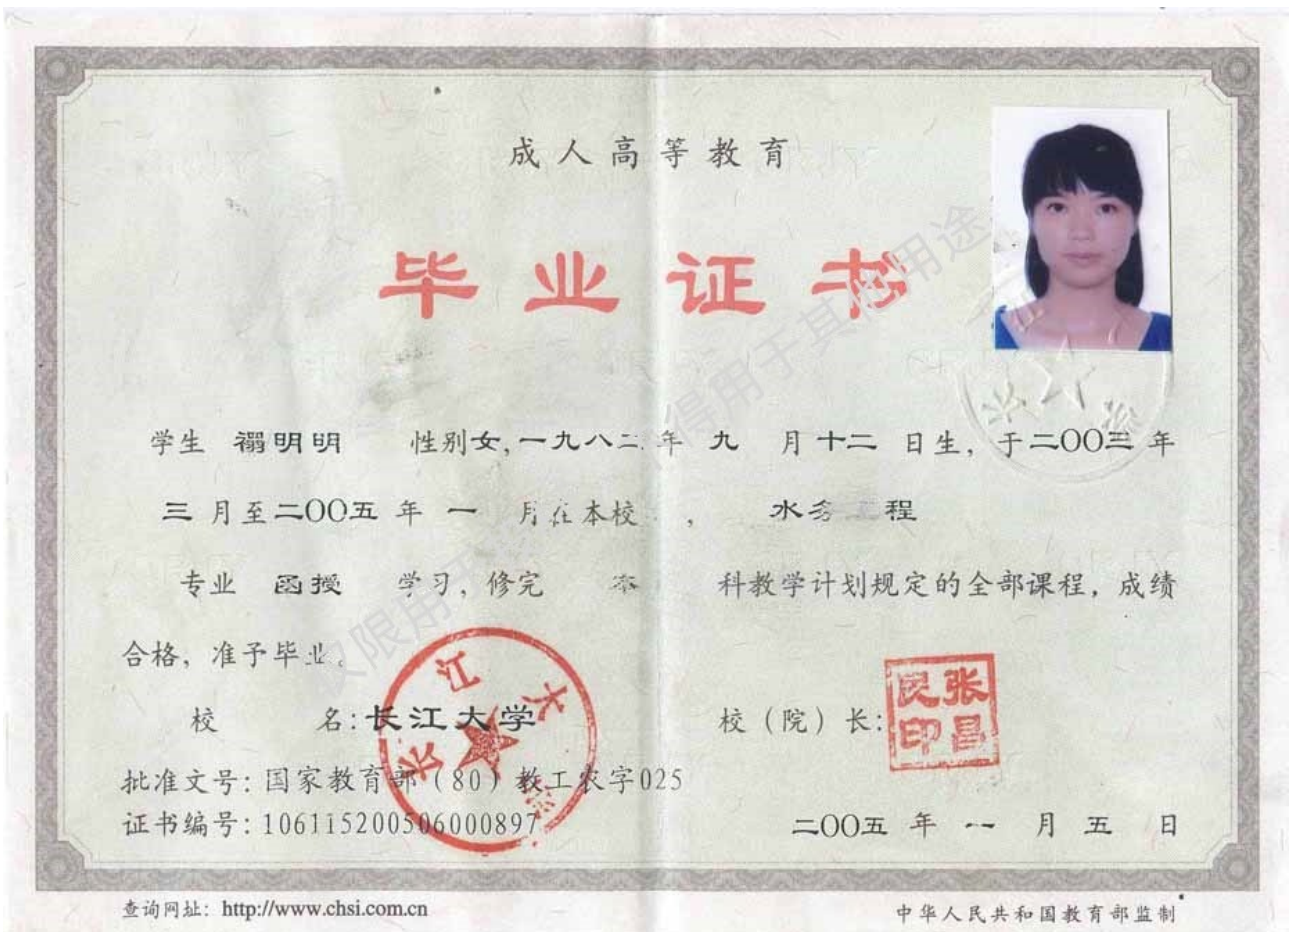 成人高等教育
毕业证书
学生 禤明明 性别女,一九八二年 九 月十二 日生,于二〇〇三 年
三 月至二〇〇五 年 一 月在本校 , 水务工程
专业 函授 学习,修完 本 科教学计划规定的全部课程,成绩
合格,准予毕业。
校 名:长江大学
校(院)长:
张昌民印
批准文号:国家教育部(80)教工农字025
证书编号:106115200506000897
二〇〇五 年 一 月 五 日
查询网址:http://www.chsi.com.cn
中华人民共和国教育部监制